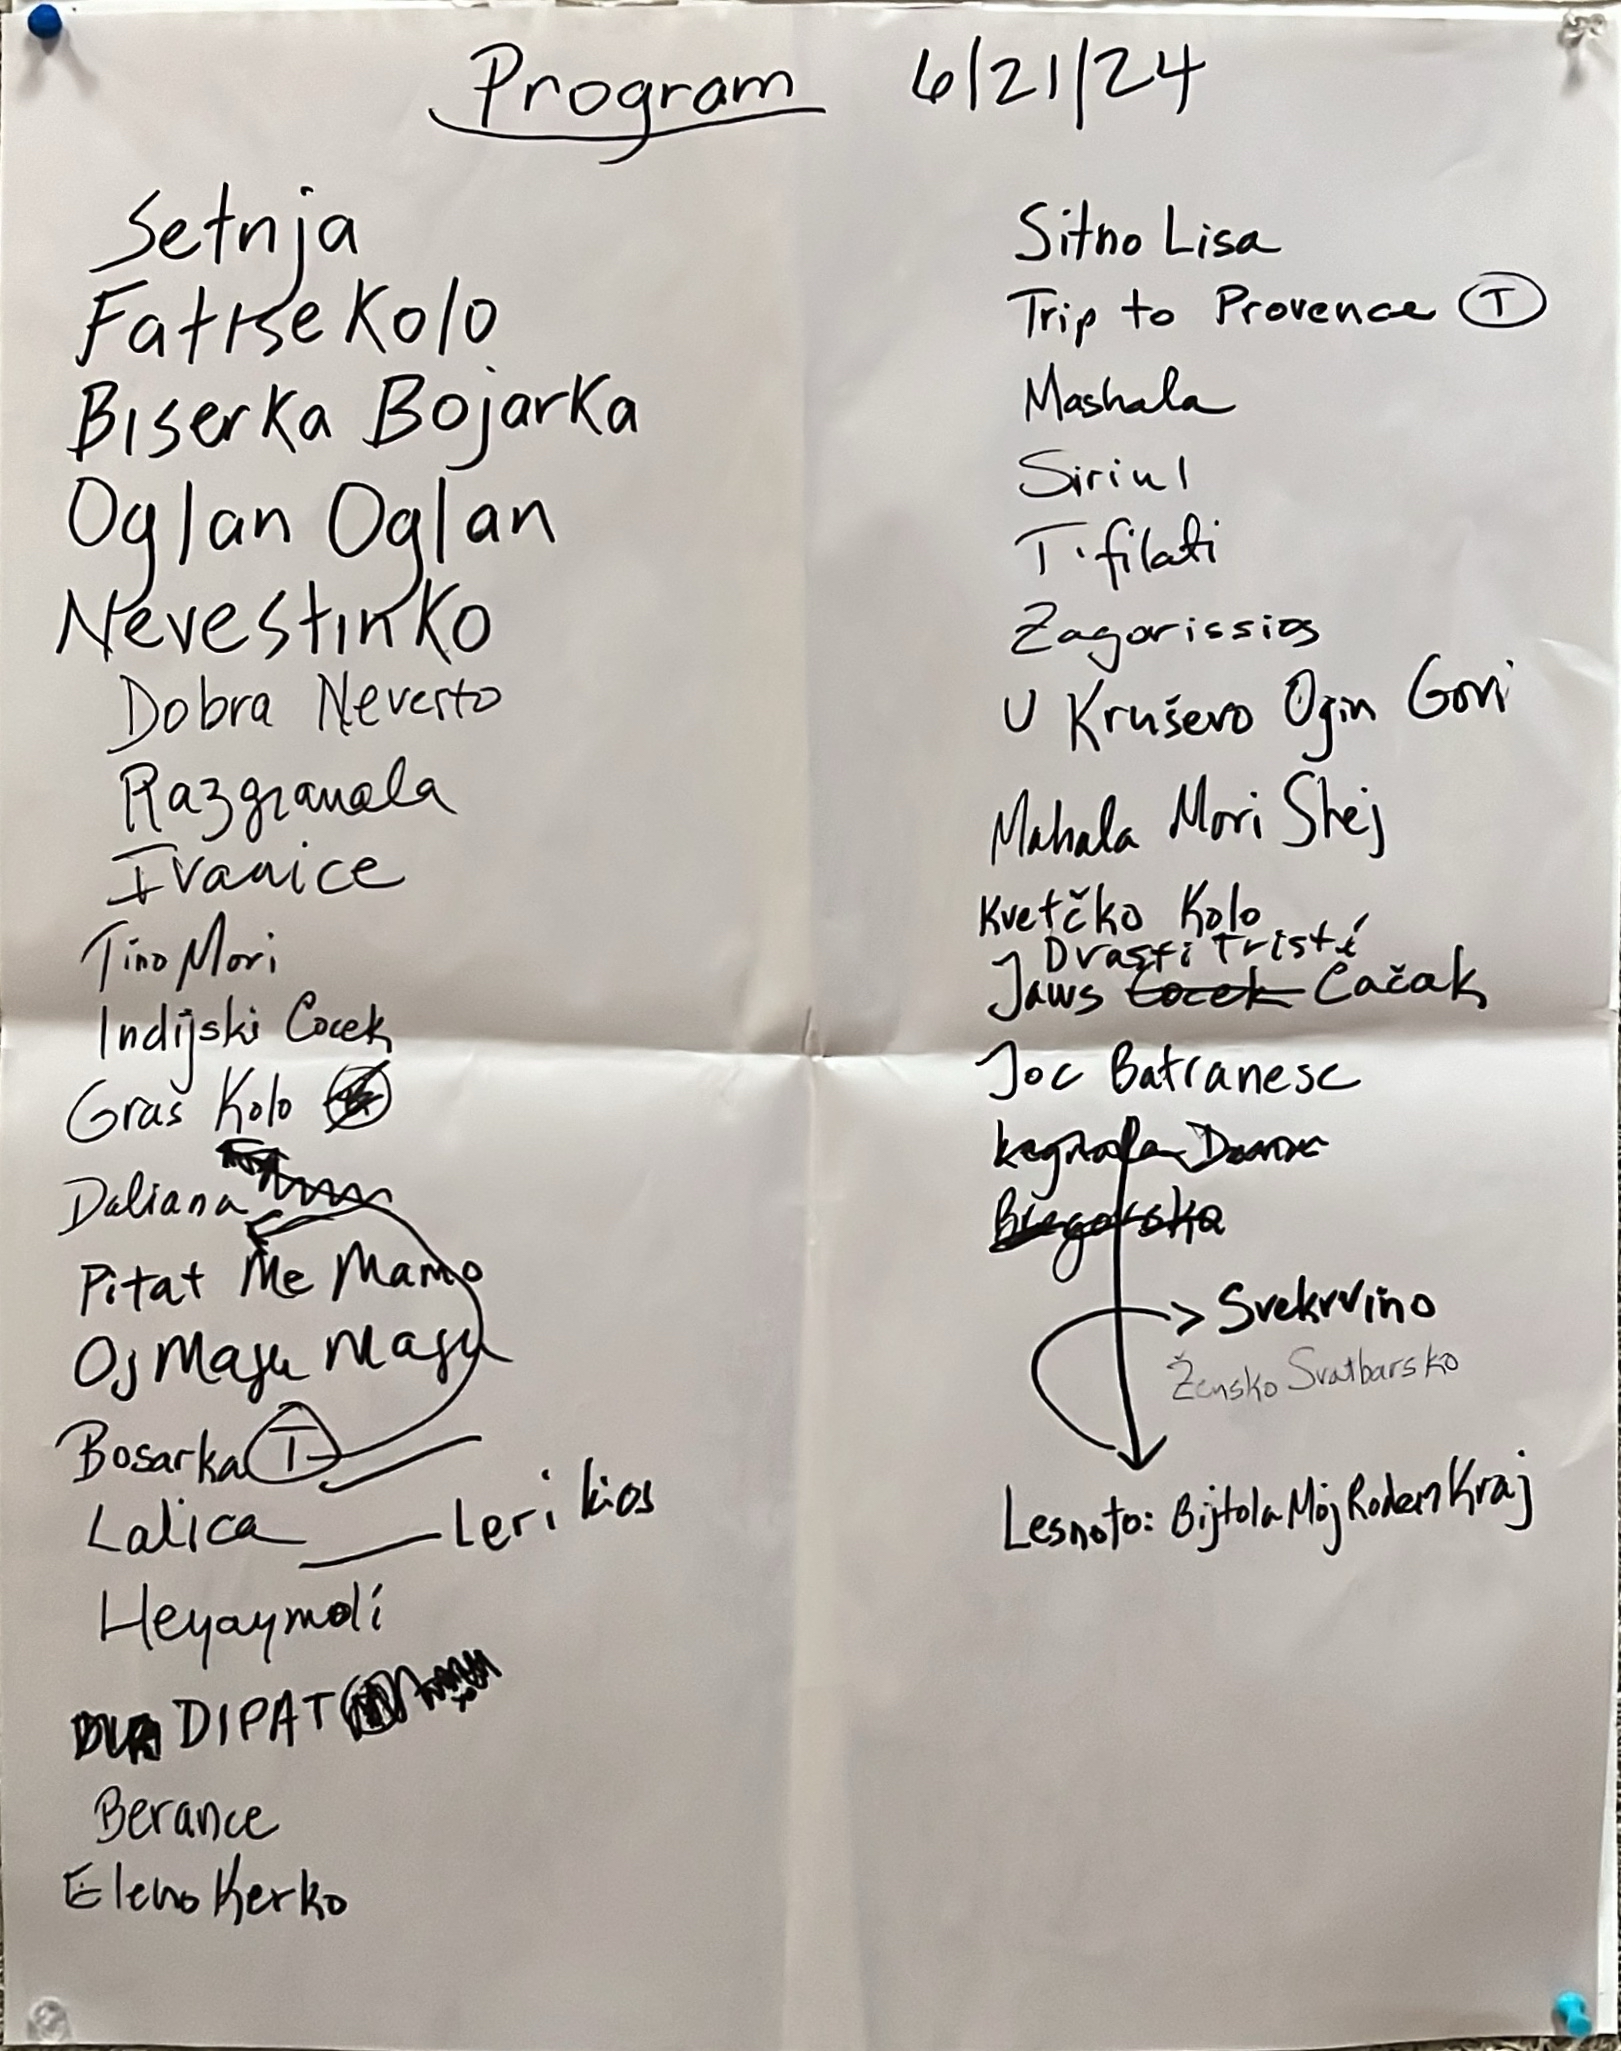 Program 6/21/24
Setnja
Fatise Kolo
Biserka Bojarka
Oglan Oglan
Nevestinko
Dobra Nevesto
Razgranala
Ivanice
Tino Mori
Indijski Cocek
Graš Kolo
Daliana
Pitat Me Mamo
Oj Maju Maju
Bosarka T
Lalica Leri kios
Heyaymoli
DIPAT
Berance
Eleno Kerko
Sitno Lisa
Trip to Provence T
Mashala
Siriul
T'filati
Zagorissios
U Kruševo Ogin Gori
Mahala Mori Shej
Kvetčko Kolo
Drasti Tristi
Jaws Cocek Čačak
Joc Batranesc
Bregovska
Svekrvino
Žensko Svatbarsko
Lesnoto: Bijtola Moj Roden Kraj